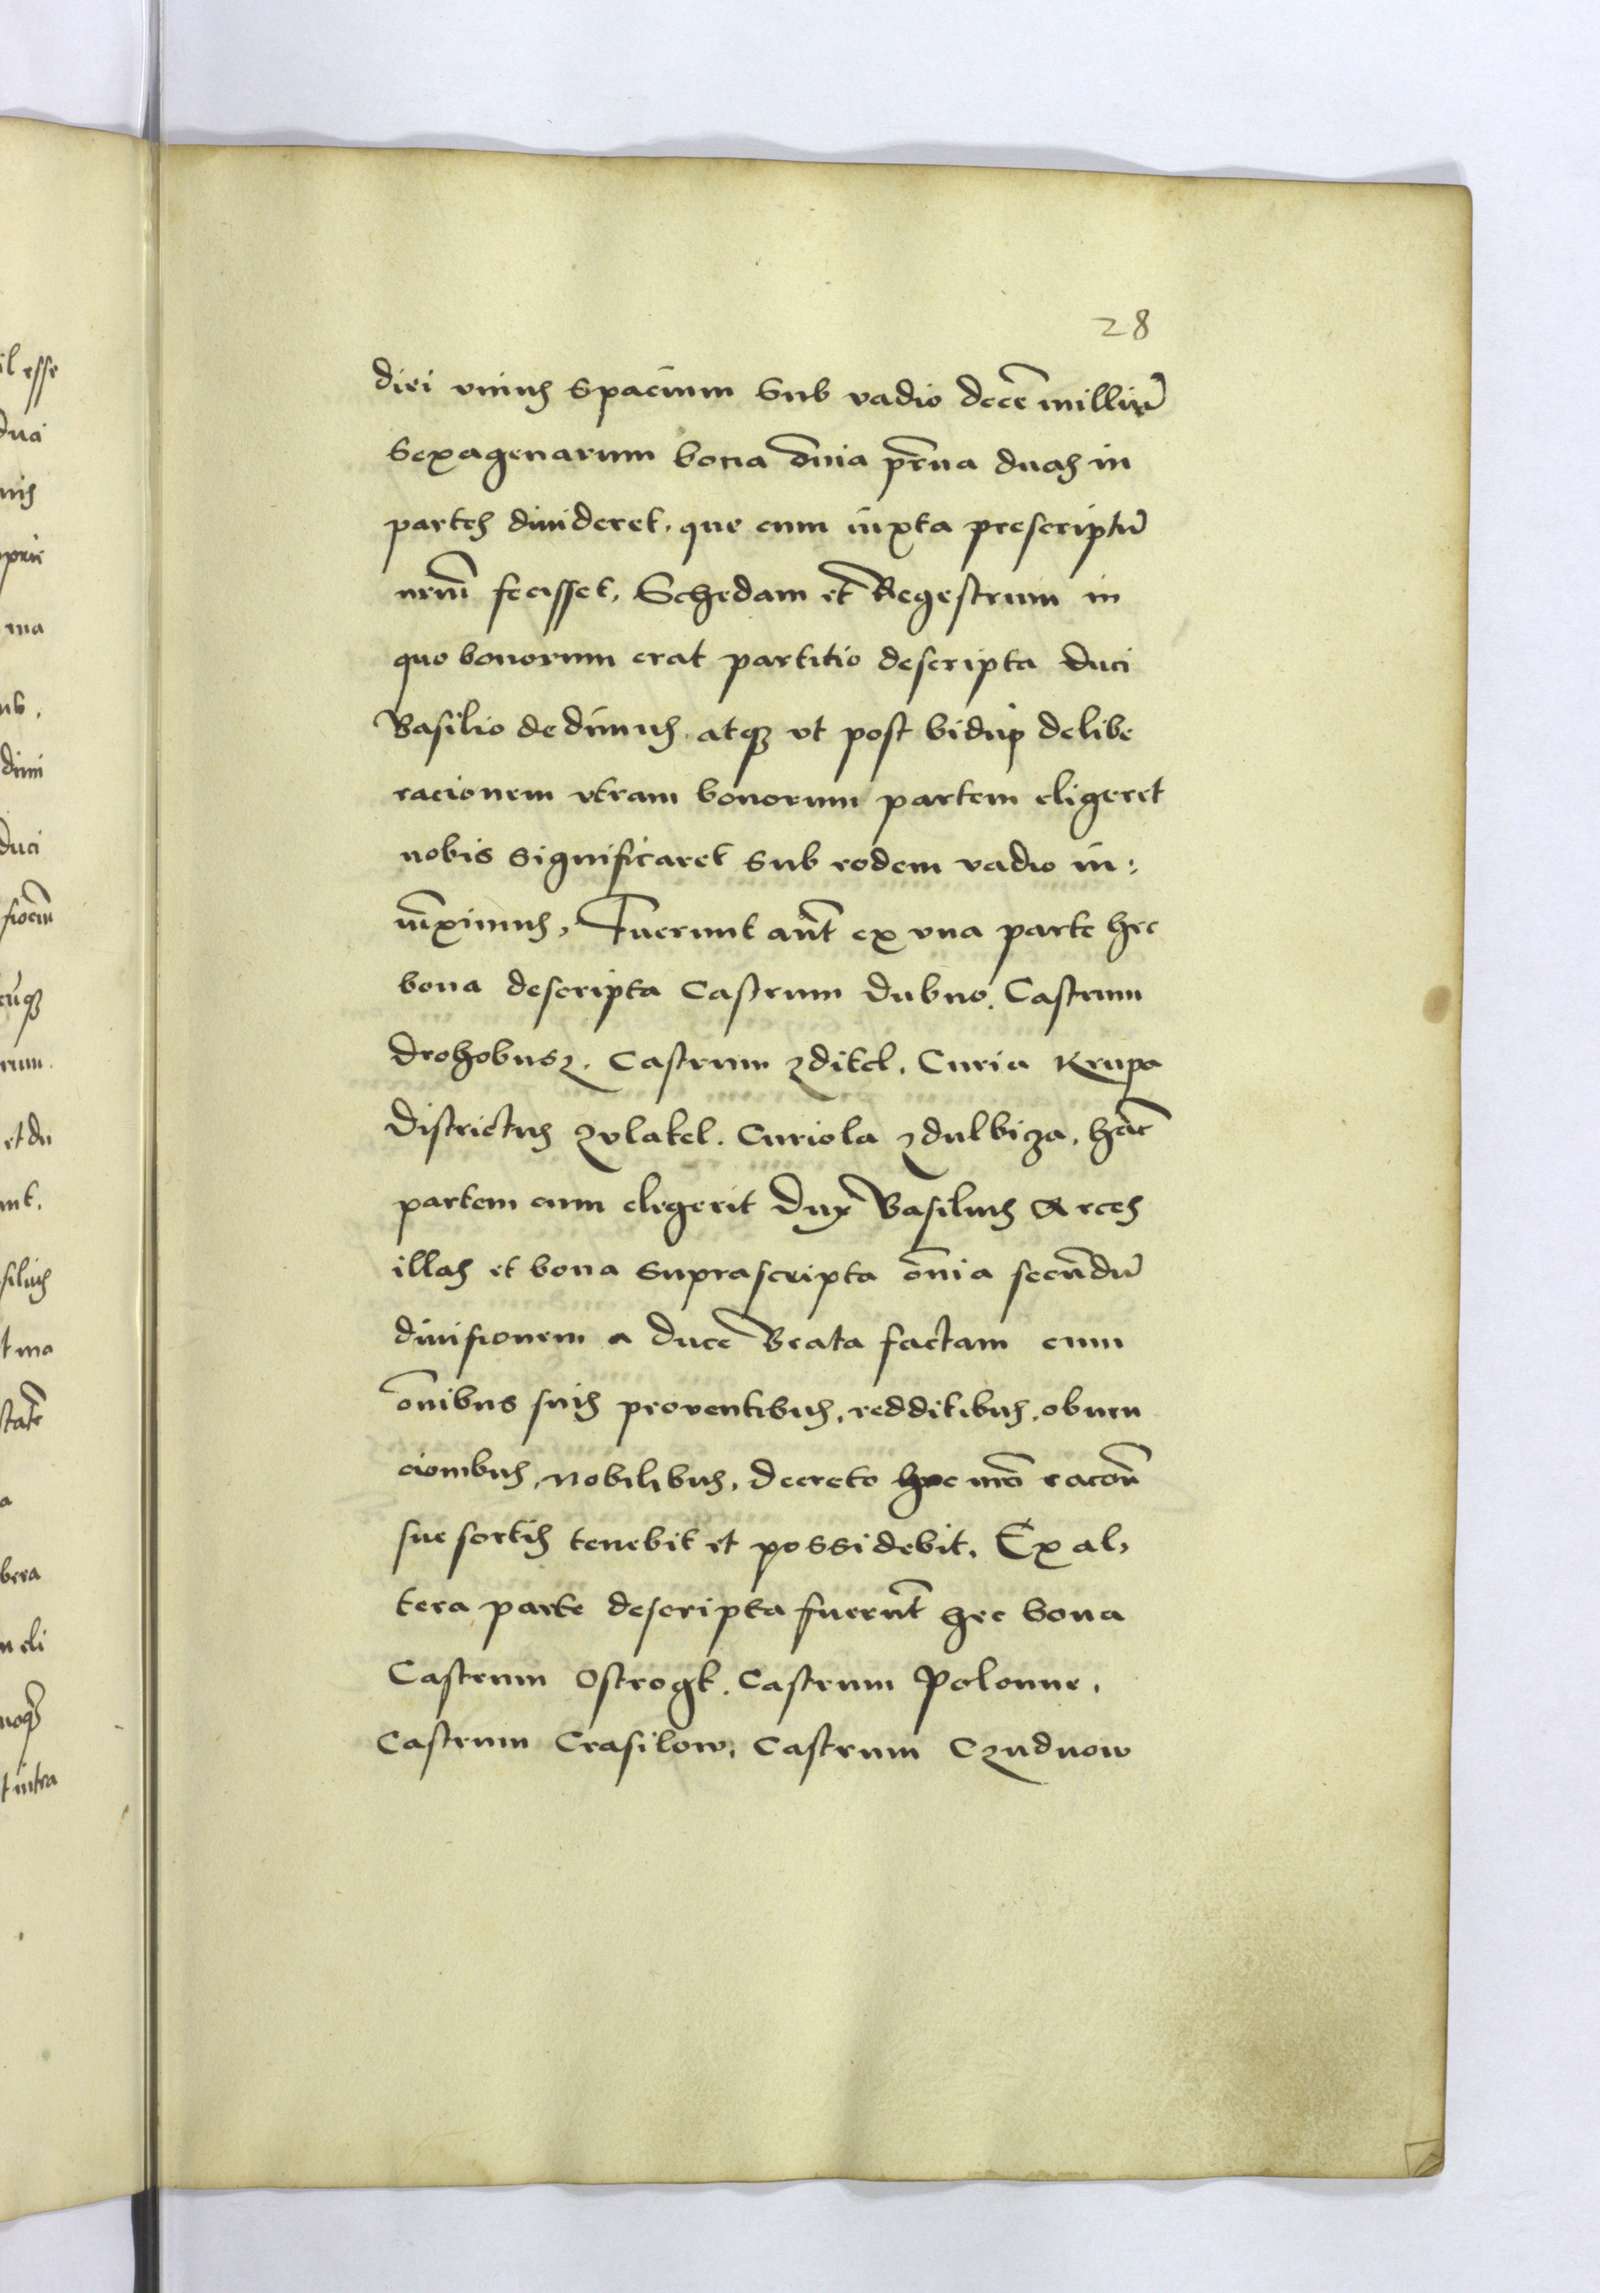 28
diei vnius spacium sub vadio decē milliū
sexagenarum bona ōnia p̄rna duas in
partes diuideret, que cum iuxta prescriptū
nrm̄ fecisset, Schedam et Regestrum in
quo bonorum erat partitio descripta duci
Basilio dedimus, atqȝ vt post bidui delibe
racionem vtram bonorum partem eligeret
nobis significaret sub eodem vadio in:
iūximus, Fuerunt aūt ex vna parte hec
bona descripta Castrum Dubno, Castrum
Drohobusz, Castrum zditel, Curia Krupa
Districtus zvlakel, Curiola zdulbiza, hāc
partem cum elegerit Dux Basilius Arces
illas et bona suprascripta ōnia secundū
diuisionem a Duce Beata factam cum
ōnibus suis prouentibus, redditibus, obuen
cionibus, nobilibus, decreto hoc nrō racōn̄
sue sortis tenebit et possidebit, Ex al,
tera parte descripta fuerūt hec bona
Castrum Ostrogk, Castrum Polonne,
Castrum Crasilow, Castrum Czudnow
il esse
duci
nis
ma
dimi
duci
et du
silius
bera
t intra